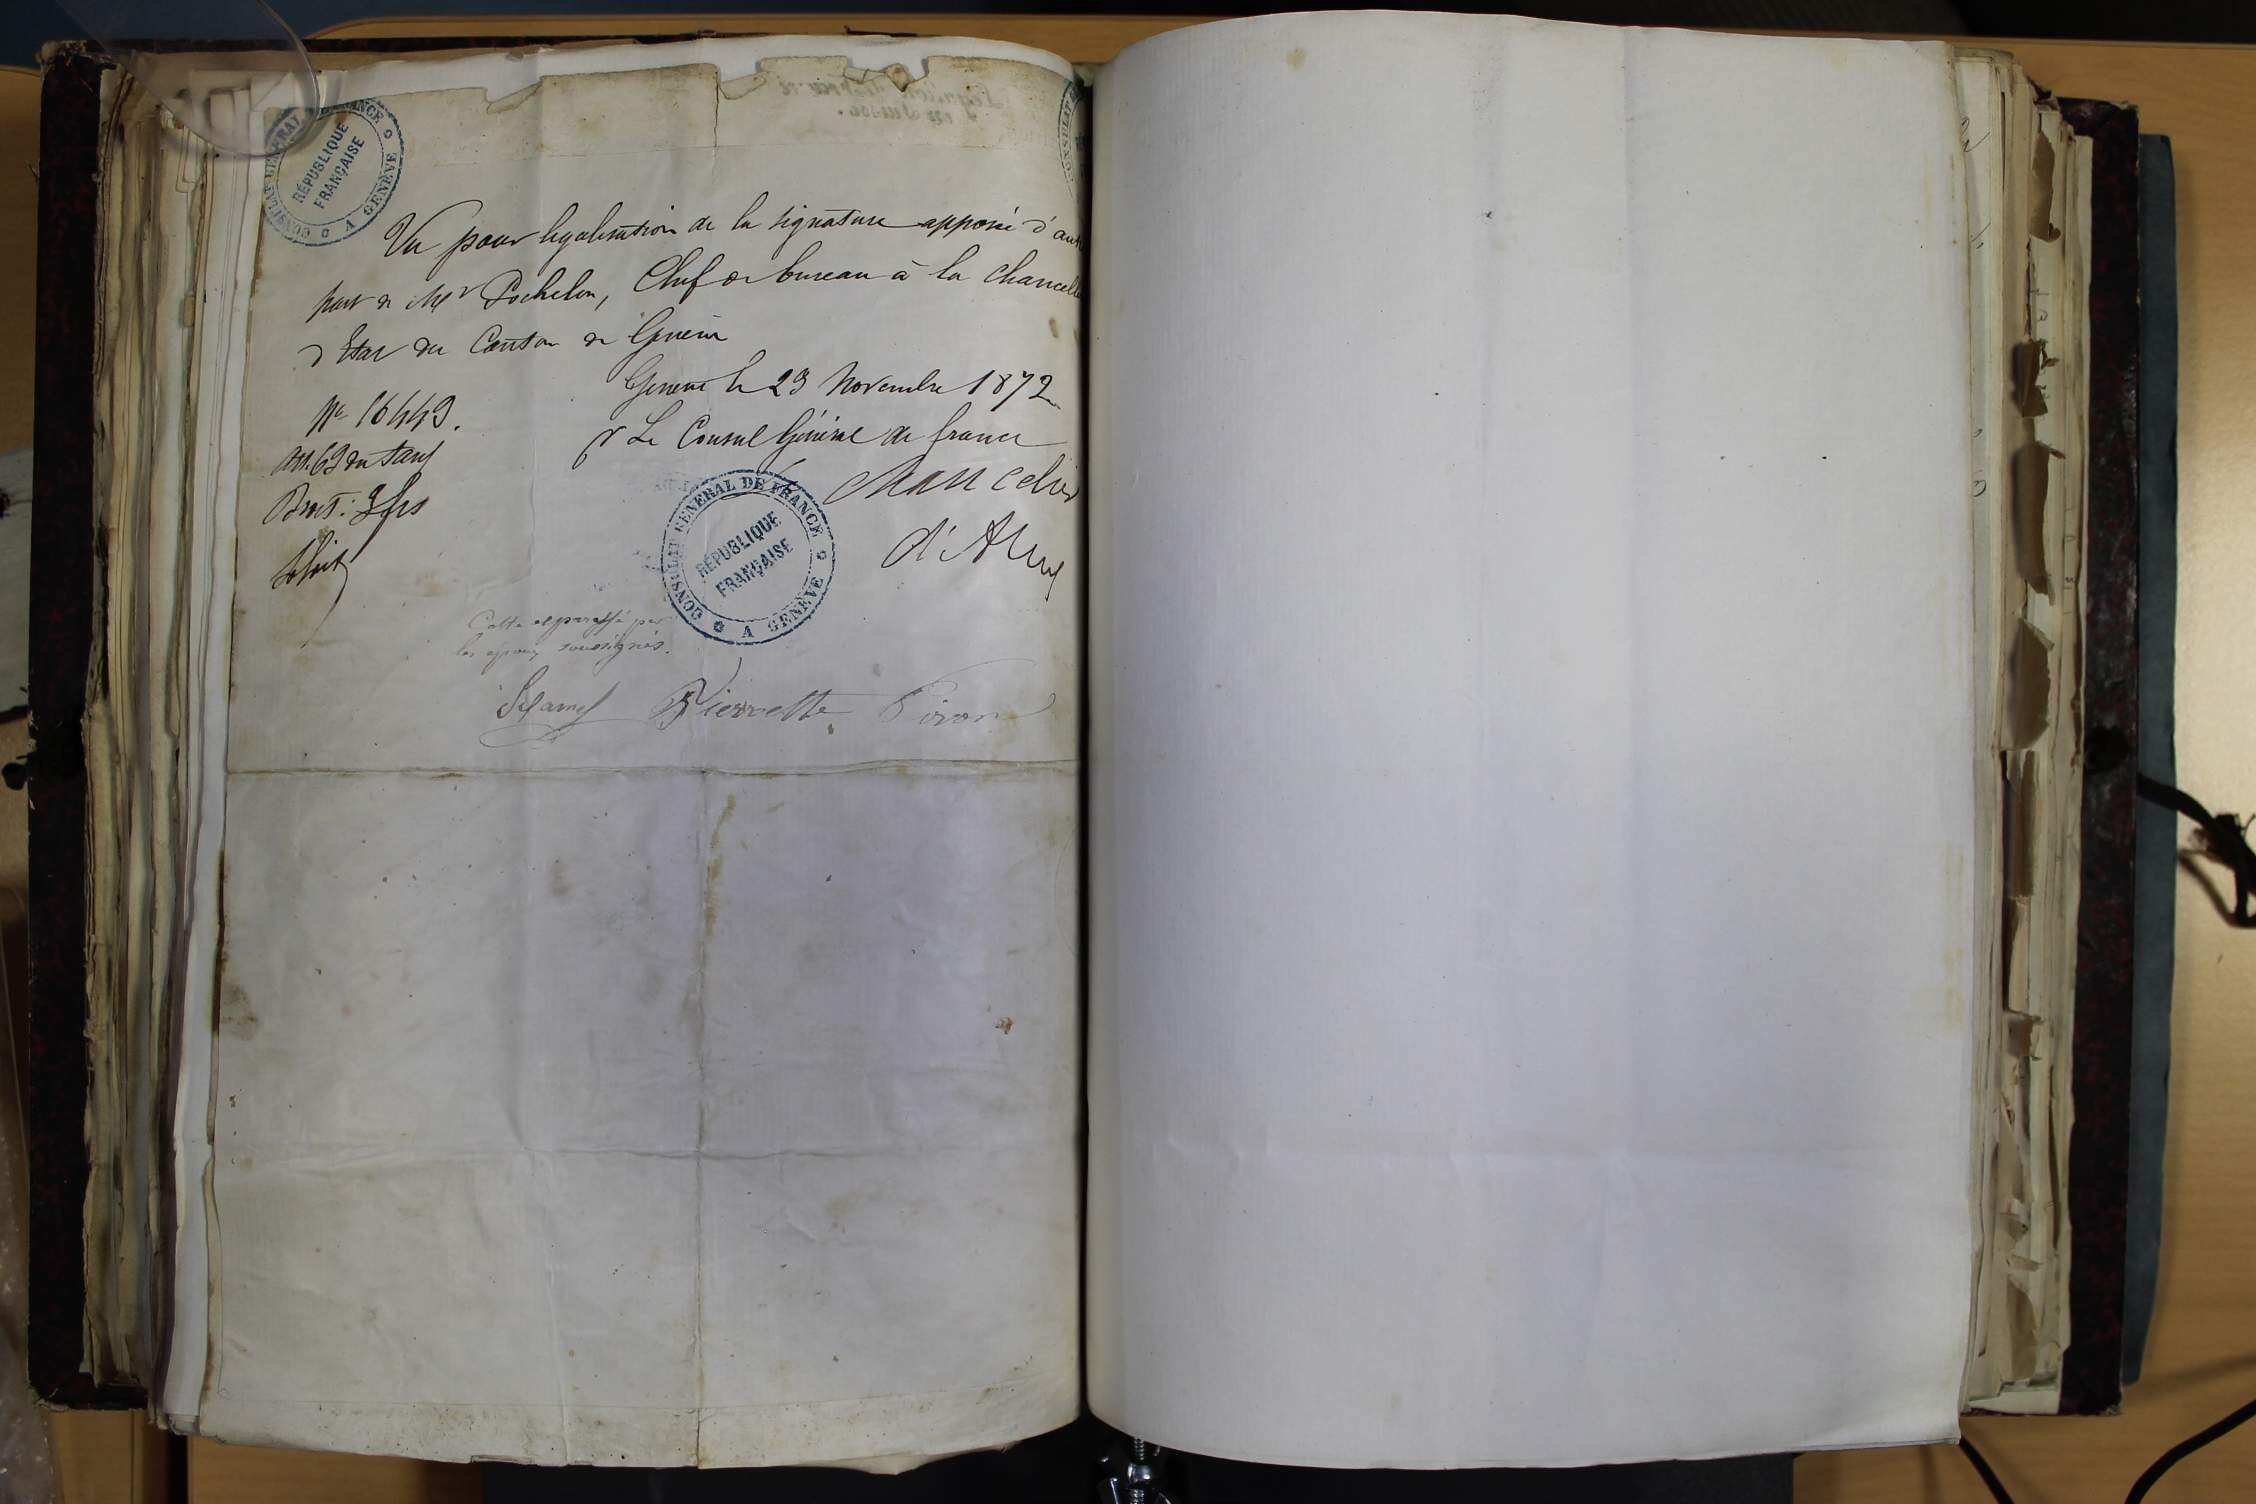 CONSULAT GÉNÉRAL DE FRANCE
RÉPUBLIQUE
FRANÇAISE
A GENÈVE
CONSULAT
Vu pour légalisation de la signature apposée d'autr
part de Mr Pochelon, Chef de bureau à la Chancelle
d'Etat du Canton de Genève
Genève le 23 Novembre 1872
No 16449.
pr Le Consul Général de france
Art. 69 du tarif
Chancelier
CONSULAT GÉNÉRAL DE FRANCE
RÉPUBLIQUE
FRANÇAISE
A GENÈVE
Cotté et paraffé par
les époux soussignés.
Pierrette Piron